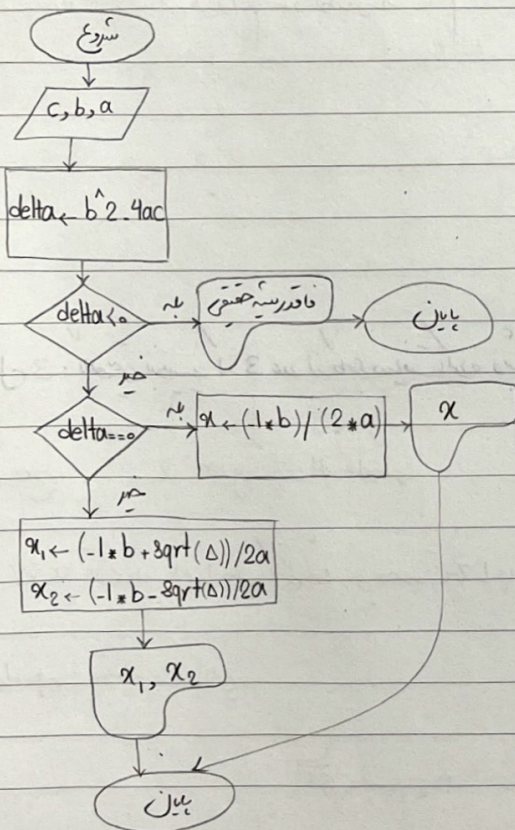 شروع
c, b, a
delta ← b^2 - 4ac
delta < 0
بله
فاقد ریشه حقیقی
پایان
خیر
delta == 0
بله
x ← (-1*b) / (2*a)
x
خیر
x₁ ← (-1*b + sqrt(Δ))/2a
x₂ ← (-1*b - sqrt(Δ))/2a
x₁, x₂
پایان